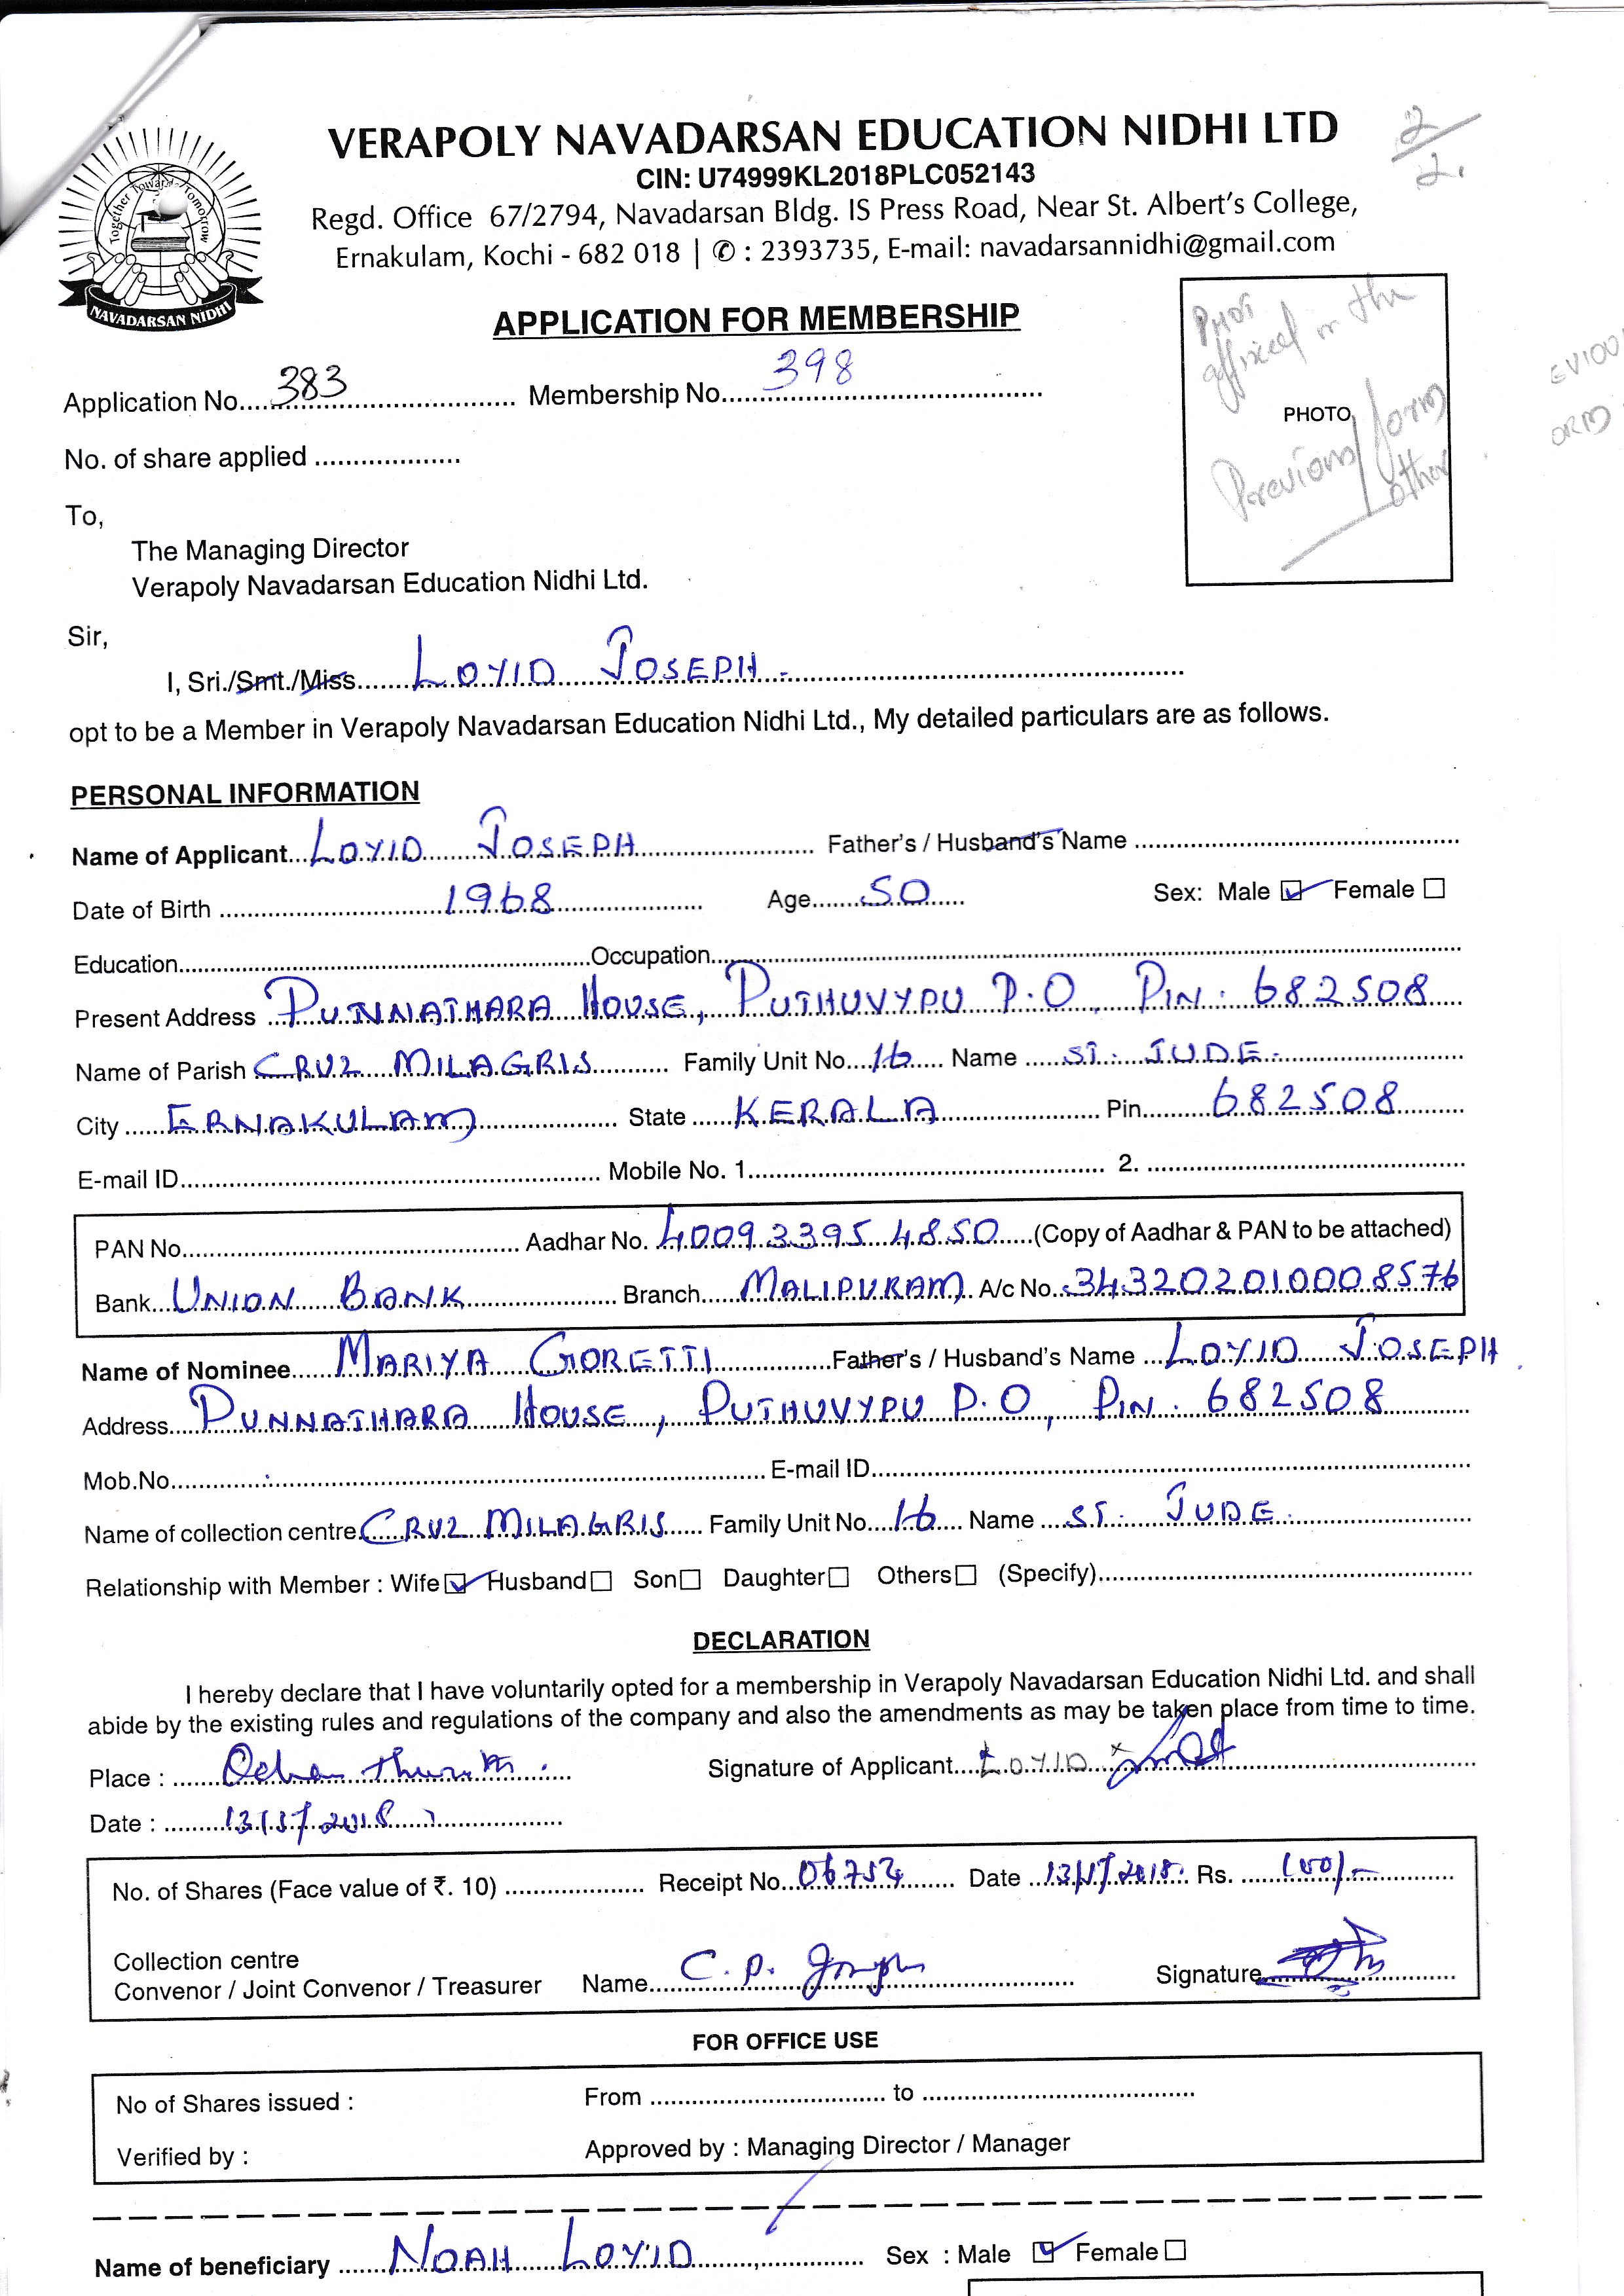 VERAPOLY NAVADARSAN EDUCATION NIDHI LTD
CIN: U74999KL2018PLC052143
Regd. Office 67/2794, Navadarsan Bldg. IS Press Road, Near St. Albert's College,
Ernakulam, Kochi - 682 018 | ✆ : 2393735, E-mail: navadarsannidhi@gmail.com
Together Towards Tomorrow
NAVADARSAN NIDHI
2/2.
APPLICATION FOR MEMBERSHIP
Application No. 383 Membership No. 398
PHOTO
Phot affixed in the Previous form other
EVIOU
ORM
No. of share applied
To,
The Managing Director
Verapoly Navadarsan Education Nidhi Ltd.
Sir,
I, Sri./Smt./Miss LOYID JOSEPH.
opt to be a Member in Verapoly Navadarsan Education Nidhi Ltd., My detailed particulars are as follows.
PERSONAL INFORMATION
Name of Applicant LOYID JOSEPH Father's / Husband's Name
Date of Birth 1968 Age 50 Sex: Male ☑ Female ☐
Education Occupation
Present Address PUNNATHARA HOUSE, PUTHUVYPU P.O, PIN. 682508
Name of Parish CRUZ MILAGRIS Family Unit No. 16 Name ST. JUDE.
City ERNAKULAM State KERALA Pin 682508
E-mail ID Mobile No. 1 2.
PAN No. Aadhar No. 4009 3395 4850 (Copy of Aadhar & PAN to be attached)
Bank UNION BANK Branch MALIPURAM A/c No. 343202010008576
Name of Nominee MARIYA GORETTI Father's / Husband's Name LOYID JOSEPH
Address PUNNATHARA HOUSE, PUTHUVYPU P.O, PIN. 682508
Mob.No. E-mail ID
Name of collection centre CRUZ MILAGRIS Family Unit No. 16 Name ST. JUDE.
Relationship with Member : Wife ☑ Husband ☐ Son ☐ Daughter ☐ Others ☐ (Specify)
DECLARATION
I hereby declare that I have voluntarily opted for a membership in Verapoly Navadarsan Education Nidhi Ltd. and shall
abide by the existing rules and regulations of the company and also the amendments as may be taken place from time to time.
Place : Signature of Applicant LOYID
Date : 2018
No. of Shares (Face value of ₹. 10) Receipt No. 06754 Date 2018. Rs. 100/-
Collection centre
Convenor / Joint Convenor / Treasurer Name C. P. Joseph Signature
FOR OFFICE USE
No of Shares issued : From to
Verified by : Approved by : Managing Director / Manager
Name of beneficiary NOAH LOYID Sex : Male ☑ Female ☐